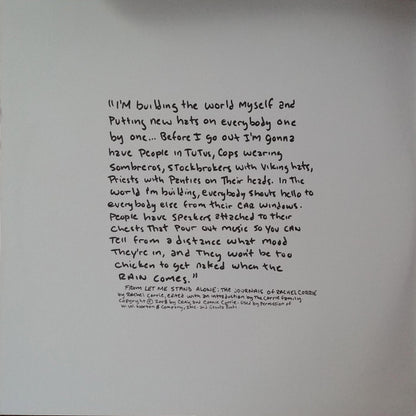 "I'M building the world myself and
Putting new hats on everybody one
by one... Before I go out I'm gonna
have People in TuTus, Cops wearing
Sombreros, Stockbrokers with Viking hats,
Priests with Panties on Their heads. In The
World I'm building, everybody shouts hello to
everybody else from their car windows.
People have speakers attached to their
chests That Pour out music so You CAN
Tell from a distance what mood
They're in, and They won't be too
chicken to get naked when the
RAIN comes."
FROM LET ME STAND ALONE: THE JOURNALS OF RACHEL CORRIE
by Rachel Corrie, edited with an introduction by The Corrie Family
Copyright © 2008 by Craig and Cynthia Corrie. Used by Permission of
W.W. Norton & Company, Inc.